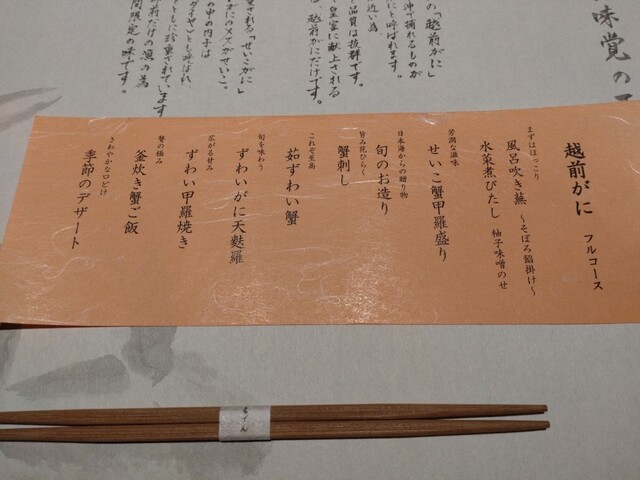 味覚の
の「越前がに」
沖で捕れるものが
にと呼ばれます。
近い為
品質は抜群です。
皇室に献上される
越前がにだけです。
される「せいこがに」
がにのメスがせいこ。
の中の内子は
とも呼ばれ、
珍重されています
前だけの漁の為
間限定の味です。
越前がに フルコース
まずはほっこり
風呂吹き蕪 ～そぼろ餡掛け～
水菜煮びたし 柚子味噌のせ
芳潤な滋味
せいこ蟹甲羅盛り
日本海からの贈り物
旬のお造り
旨み花ひらく
蟹刺し
これぞ至高
茹ずわい蟹
旬を味わう
ずわいがに天麩羅
広がる甘み
ずわい甲羅焼き
贅の極み
釜炊き蟹ご飯
さわやかな口どけ
季節のデザート